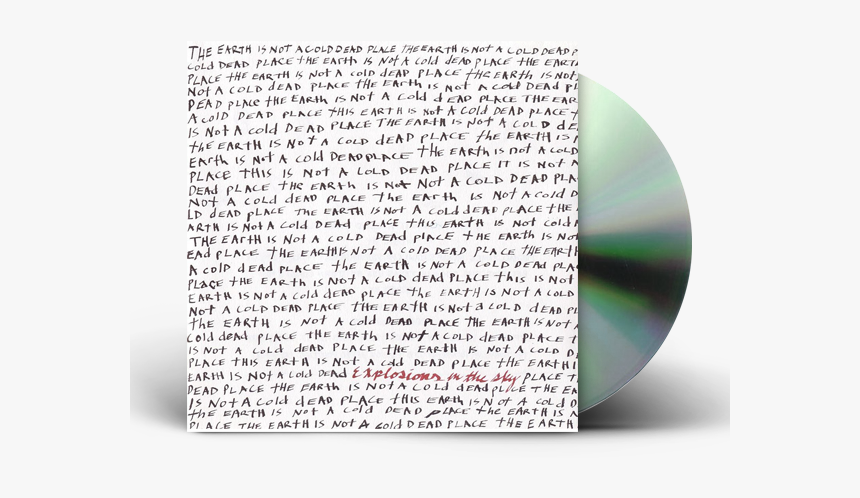 THE EARTH IS NOT A COLD DEAD PLACE THE EARTH IS NOT A COLD DEAD P
COLD DEAD PLACE tHE EARth IS NOt A COld dEAD PLACE tHE EARTH
PLACE tHE EARtH IS NOt A COLD dEAD PLACE tHE EARtH IS NOt
NOt A COLD dEAD PLACE tHE EARth IS NOt A COLD DEAD PL
DEAD PLACE tHE EARtH IS NOt A COLD dEAD PLACE THE EAR
A COLD DEAD PLACE tHIS EARTH IS NOt A COLD DEAD PLACE t
IS NOt A COld DEAD PLACE THE EARTH IS NOt A COLD DE
tHE EARTH IS NOT A COLD DEAD PLACE tHE EARTH IS
EARtH IS NOt A COld DEAD PLACE tHE EARTH IS NOT A COLD
PLACE THIS IS NOT A COLD DEAD PLACE IT IS NOT A
DEAD PLACE tHE EARtH IS NOt NOt A COLD DEAD PLA
NOt A COLD dEAD PLACE THE EARtH IS NOt A COld D
LD DEAD PLACE THE EARTH IS NOt A COLD dEAD PLACE tHE
ARTH IS NOt A COld DEAD PLACE tHIS EARTH IS NOT COld
THE EARTH IS NOt A COLD DEAD PlACE tHE EARTH IS NOt
EAD PLACE THE EARTH IS NOT A COLD DEAD PLACE THE EARTH
A COLD dEAD PLACE tHE EARTH IS NOT A COLD DEAD PLA
PLACE tHE EARTH IS NOT A COLD dEAD PLACE tHIS IS NOT
EARTH IS NOt A COld dEAD PLACE tHE EARTH IS NOT A COLD
NOt A COLD DEAD PLACE tHE EARTH IS NOt A COLD dEAD PL
tHE EARTH IS NOT A COld DEAD PLACE tHE EARTH IS NOT
COld dEAd PLACE tHE EARTH IS NOt A COLD DEAD PLACE t
IS NOt A COLD dEAD PLACE tHE EARTH IS NOT A COLD D
PLACE tHIS EARTH IS NOT A COLD DEAD PLACE tHE EARTH
EARTH IS NOT A COLD DEAD Explosions in the sky PLACE T
DEAD PLACE tHE EARTH IS NOT A COLD dEAD PLACE THE EA
IS NOT A COLD dEAD PLACE tHIS EARTH IS NOT A COLD D
tHE EARTH IS NOt A COLD DEAD PLACE tHE EARTH IS N
PLACE THE EARTH IS NOT A COLD DEAD PLACE THE EARTH